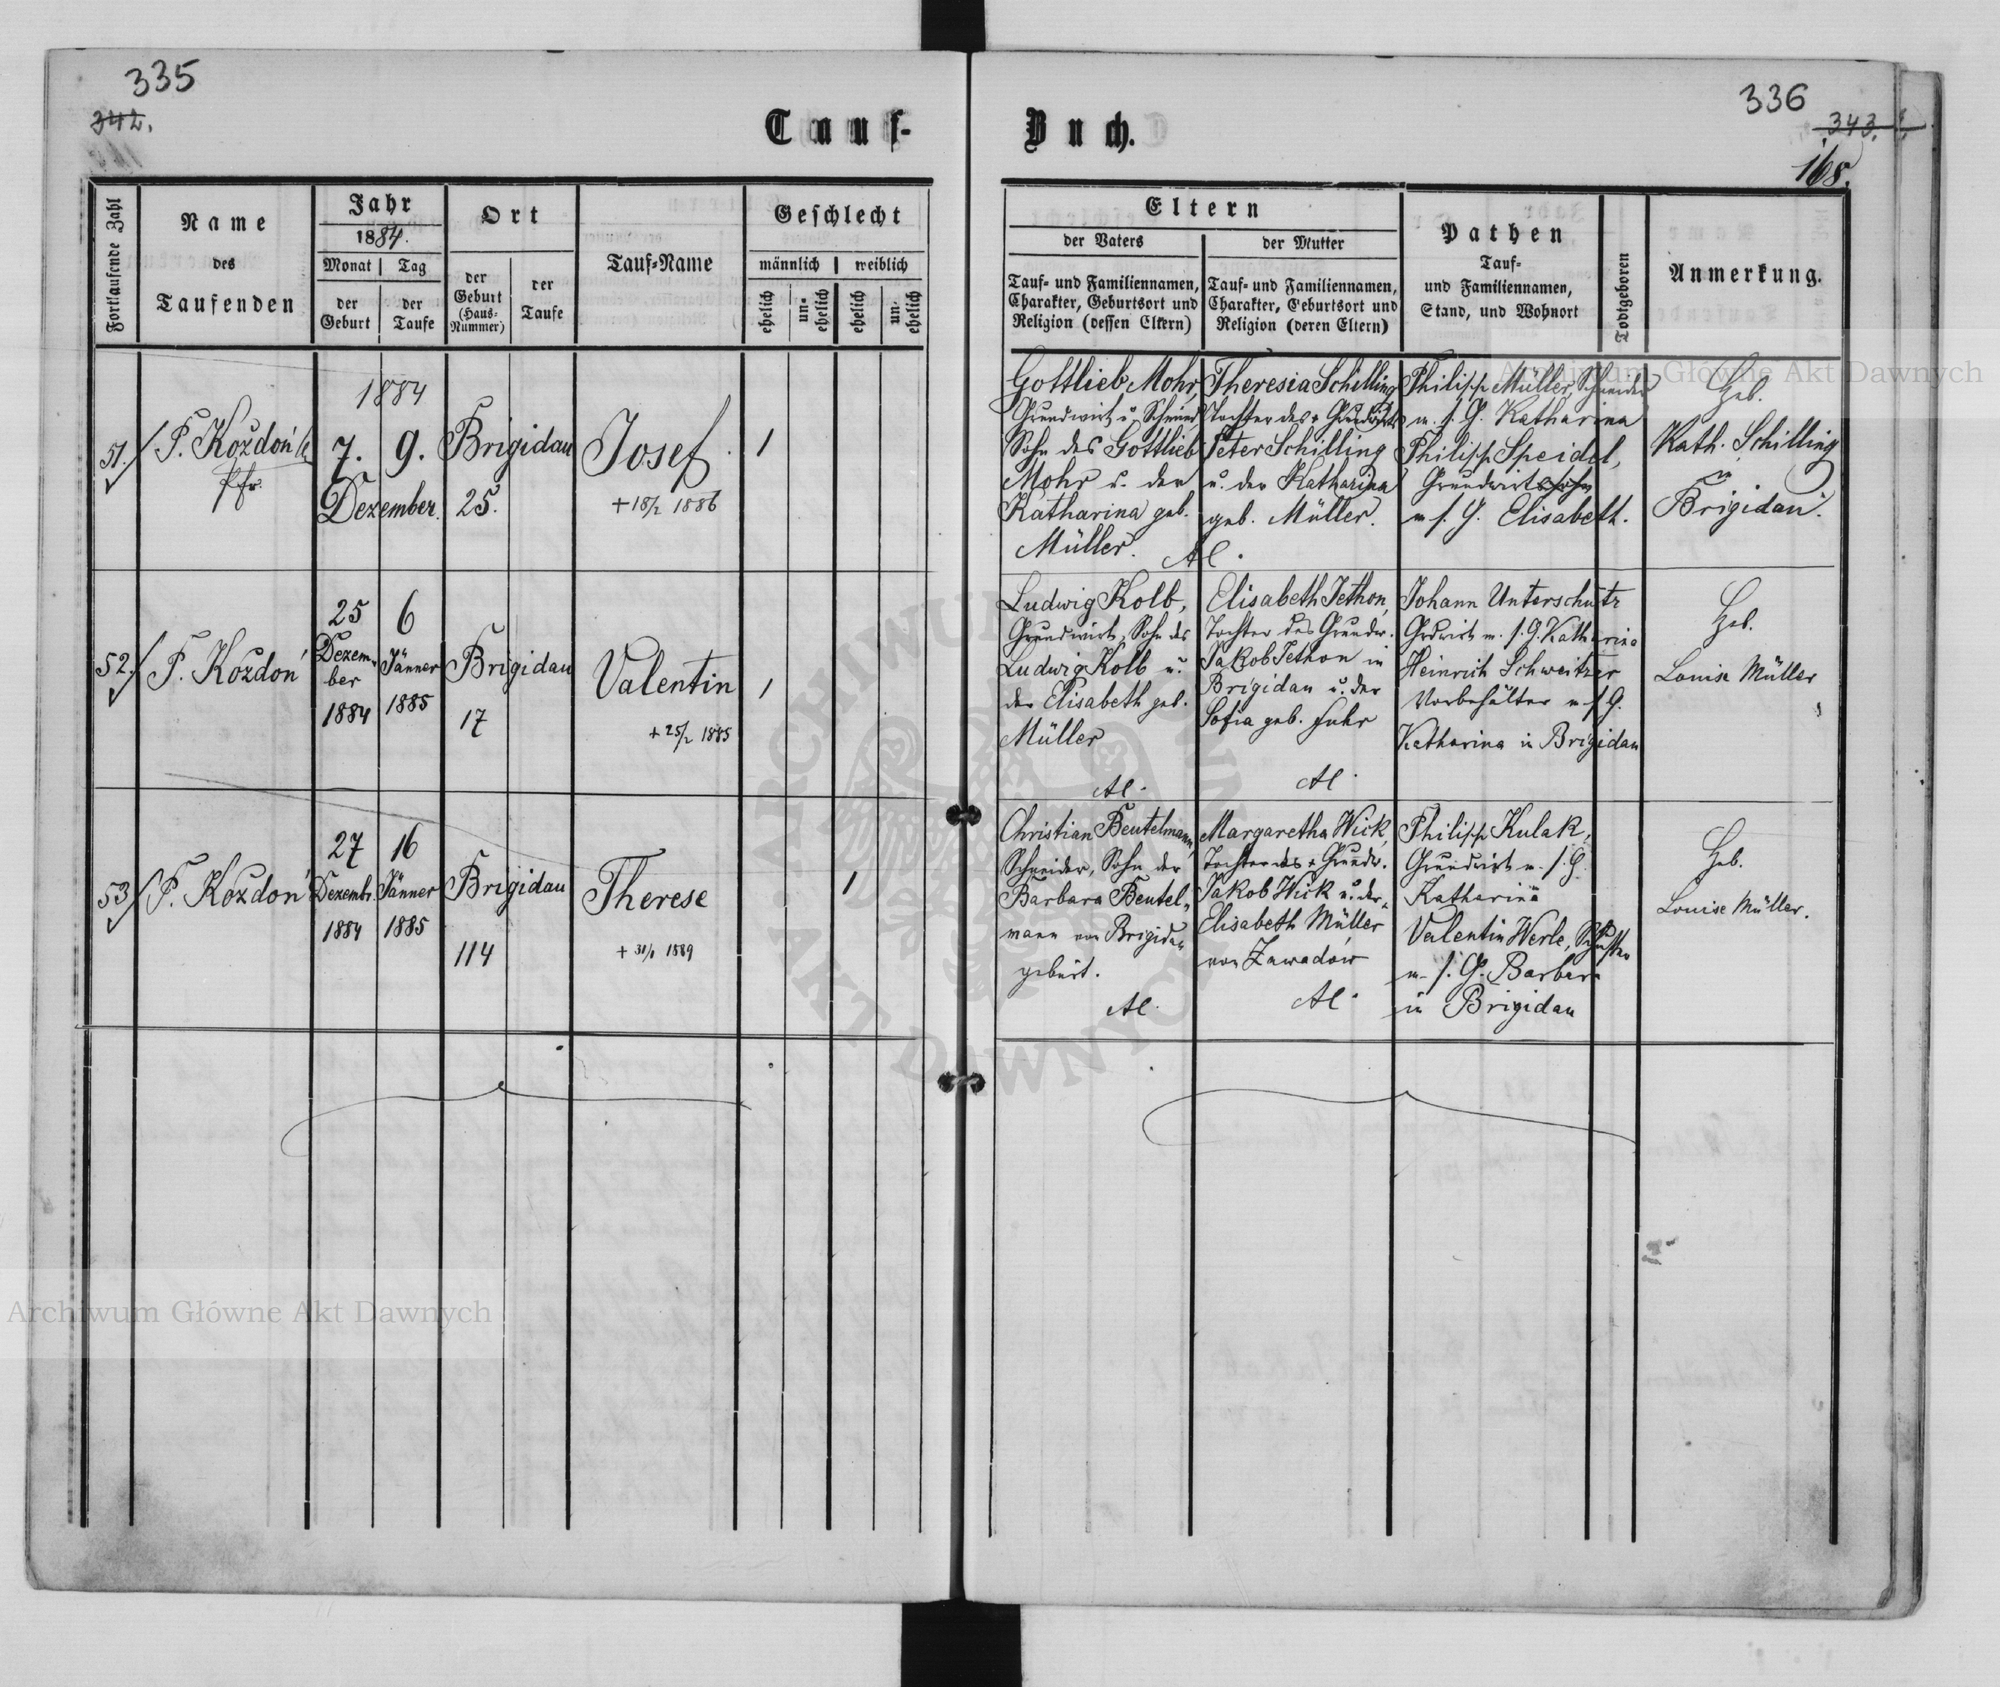 335
342.
Tauf-
Fortlaufende Zahl
Name
des
Taufenden
Jahr
1884.
Monat
Tag
der
Geburt
der
Taufe
Ort
der
Geburt
(Haus-
Nummer)
der
Taufe
Tauf-Name
Geschlecht
männlich
weiblich
ehelich
un-
ehelich
ehelich
un-
ehelich
51.
F. Kozdoń
Pfr.
1884
7. 9.
Dezember.
Brigidau
25.
Josef
+ 18/2 1886
1
52.
F. Kozdoń
25
Dezem-
ber
1884
6
Jänner
1885
Brigidau
17
Valentin
+ 25/2 1885
1
53
F. Kozdoń
27
Dezembr.
1884
16
Jänner
1885
Brigidau
114
Therese
1889
1
336
343.
168.
Buch.
Eltern
der Vaters
Tauf- und Familiennamen,
Charakter, Geburtsort und
Religion (dessen Eltern)
der Mutter
Tauf- und Familiennamen,
Charakter, Geburtsort und
Religion (deren Eltern)
Pathen
Tauf-
und Familiennamen,
Stand, und Wohnort
Todtgeboren
Anmerkung.
Gottlieb Mohr,
Grundwirt u. Schmied
Sohn des Gottlieb
Mohr u. der
Katharina geb.
Müller.
Theresia Schilling
Tochter des + Grundwirts
Peter Schilling
u. der Katharina
geb. Müller.
Al.
Philipp Müller, Schneider
m. s. G. Katharina
Philipp Speidel,
Grundwirtssohn
m s. G. Elisabeth.
Heb.
Kath. Schilling
in
Brigidau.
Ludwig Kolb,
Grundwirt, Sohn des
Ludwig Kolb u.
der Elisabeth geb.
Müller
Al.
Elisabeth Jethon,
Tochter des Grundw.
Jakob Jethon in
Brigidau u. der
Sofia geb. Fuhr
Al.
Johann Unterschütz
Grdwirt m. s. G. Katharina
Heinrich Schweitzer
Vorbehälter m s G.
Katharina in Brigidau
Heb.
Louise Müller
Christian Beutelmann,
Schneider, Sohn der
Barbara Beutel-
mann von Brigidau
gebürt.
Al.
Margaretha Wick,
Tochter des + Grundw.
Jakob Wick u. der
Elisabeth Müller
von Zawadów
Al.
Philipp Kulak,
Grundwirt m. s. G.
Katharina
Valentin Werle, Schuster
m. s. G. Barbara
in Brigidau
Heb.
Louise Müller.
Archiwum Główne Akt Dawnych
Archiwum Główne Akt Dawnych
ARCHIWUM GŁÓWNE
AKT DAWNYCH